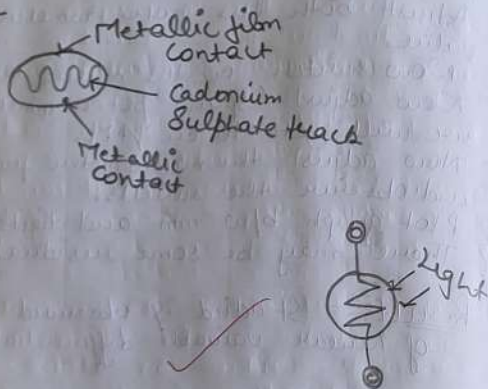 Metallic film
contact
Cadonium
Sulphate track
Metallic
contact
Light